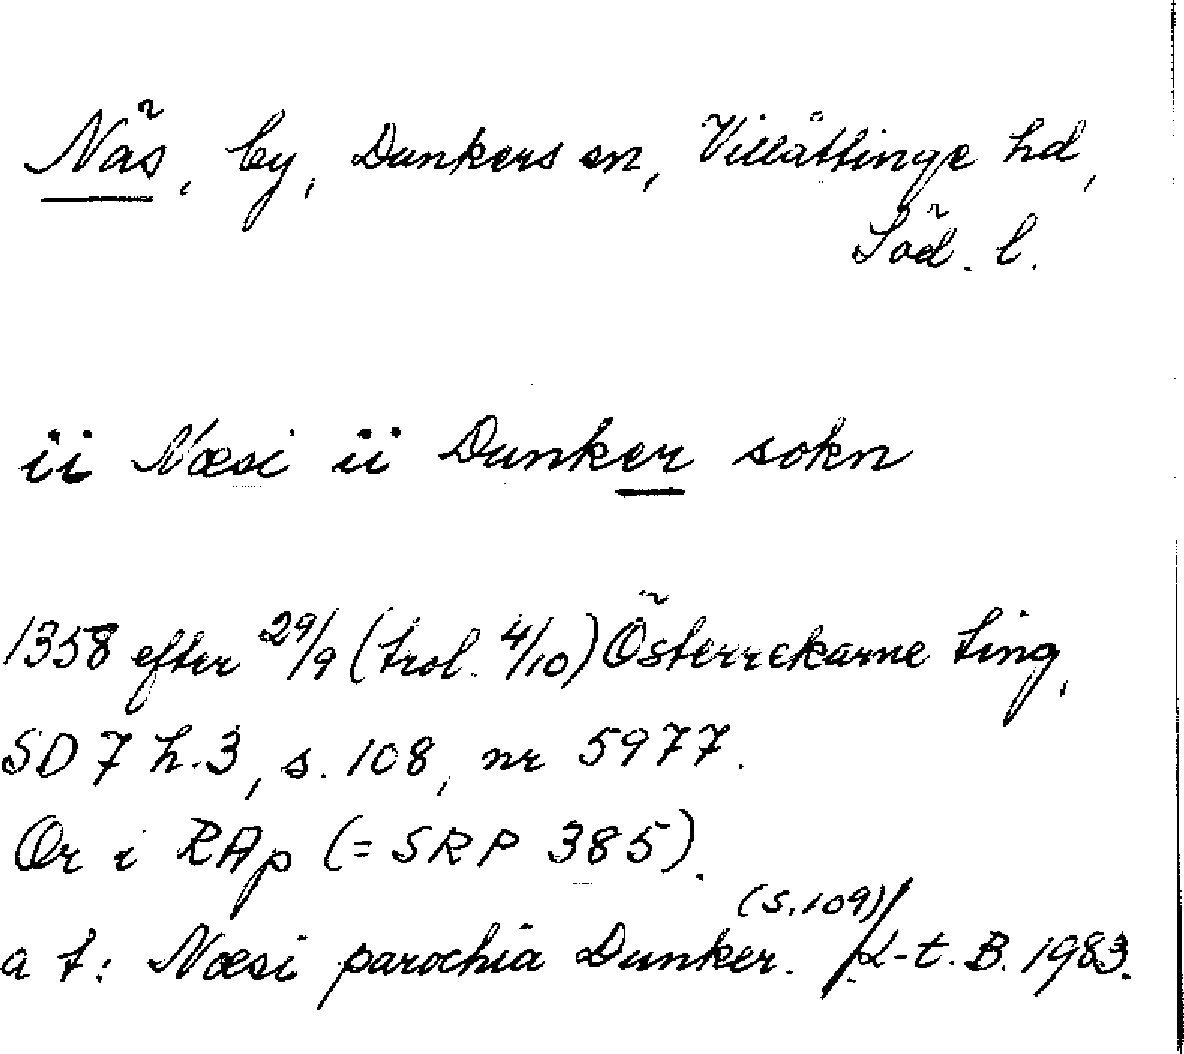 Näs, by, Dunkers sn, Villåttinge hd,
Söd. l.
ii Næsi ii Dunker sokn
1358 efter 29/9 (trol. 4/10) Österrekarne ting,
SD 7 h.3, s. 108, nr 5977.
Or i RAp (= SRP 385).
(s. 109)
a t: Næsi parochia Dunker. /L-t. B. 1983.